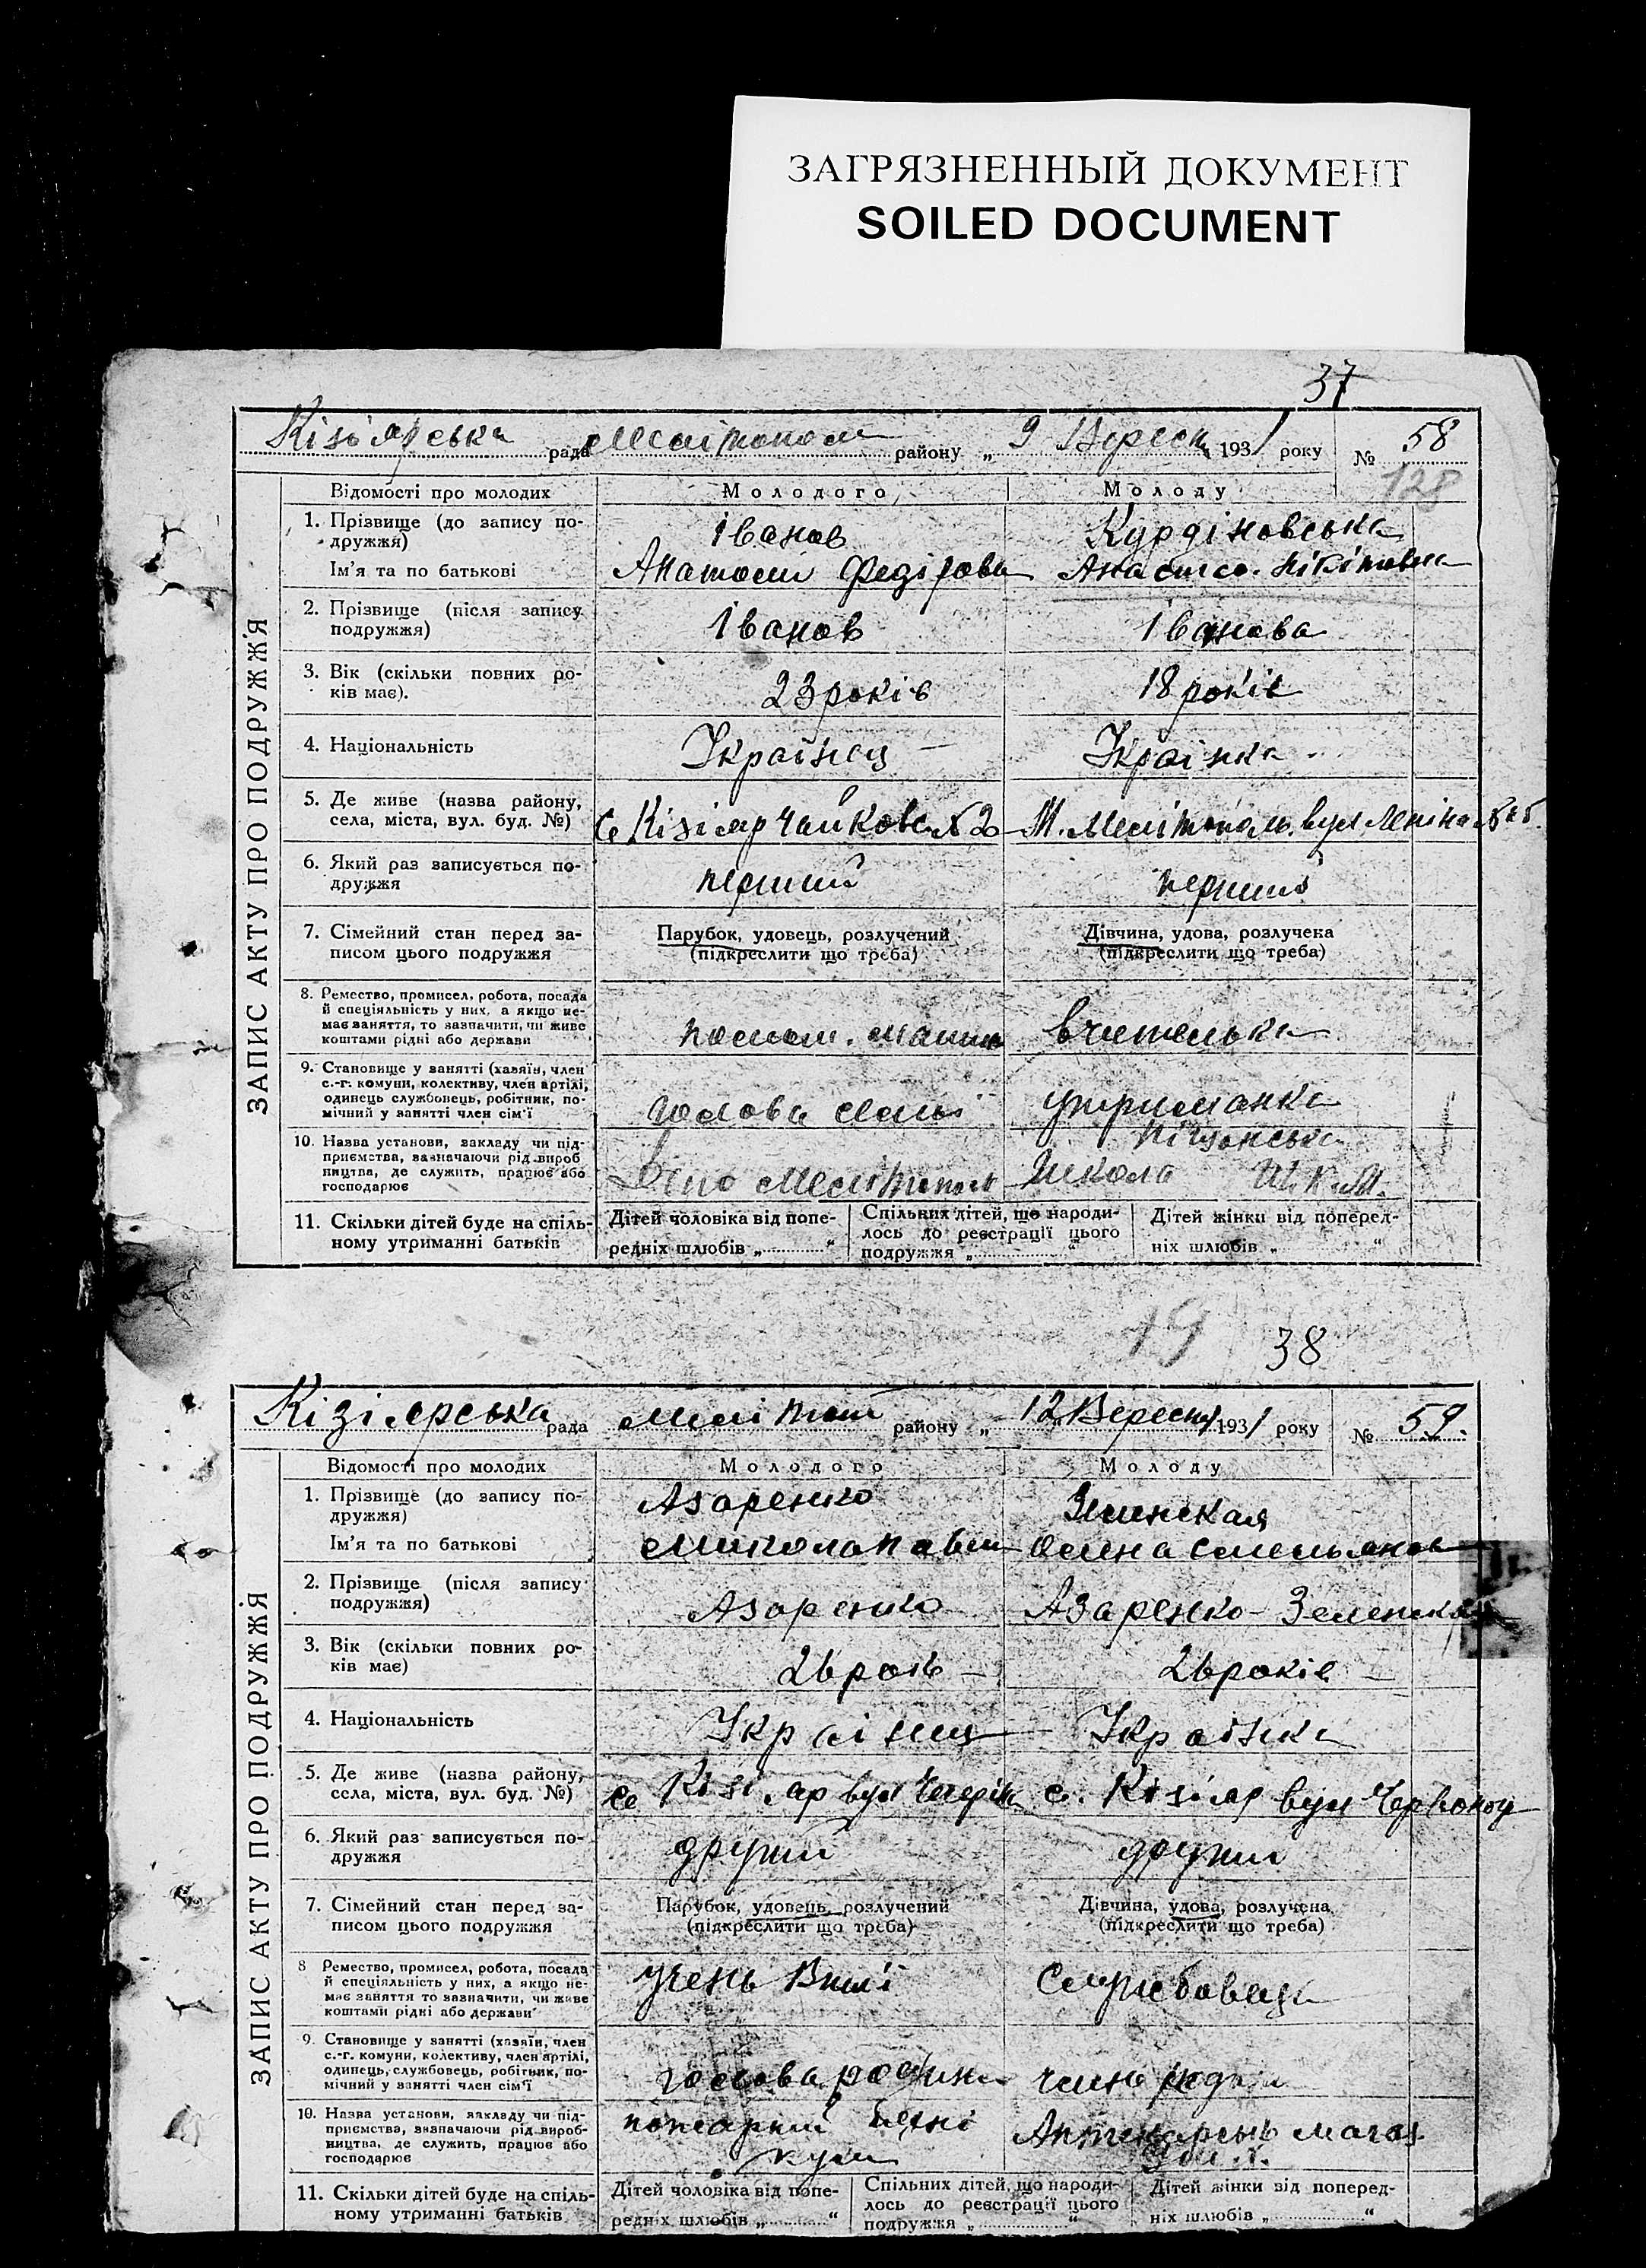 ЗАГРЯЗНЕННЫЙ ДОКУМЕНТ
SOILED DOCUMENT
37
ЗАПИС АКТУ ПРО ПОДРУЖЖЯ
Кізіярська рада Мелітопол району „ 9 Вересн 1931 року № 58
128
Відомості про молодих Молодого Молоду
1. Прізвище (до запису подружжя) Іванов Курдіновська
Ім'я та по батькові Анатолій Федірови Анастас. Нікітовна
2. Прізвище (після запису подружжя) Іванов Іванова
3. Вік (скільки повних років має). 23 років 18 років
4. Національність Українец Українка
5. Де живе (назва району, села, міста, вул. буд. №) с Кізіяр Чайковс № 20 М. Мелітополь. вул Леніна №
6. Який раз записується подружжя перший перший
7. Сімейний стан перед записом цього подружжя Парубок, удовець, розлучений (підкреслити що треба) Дівчина, удова, розлучена (підкреслити що треба)
8. Ремество, промисел, робота, посада й спеціяльність у них, а якщо немає заняття, то зазначити, чи живе коштами рідні або держави помош. машин вчителька
9. Становище у занятті (хазяїн, член с.-г. комуни, колективу, член артілі, одинець службовець, робітник, помічний у занятті член сім'ї голова сімьї утриманка
10. Назва установи, закладу чи підприємства, зазначаючи рід виробництва, де служить, працює або господарює Депо Мелітопол Піщанська Школа Ш.К.М.
11. Скільки дітей буде на спільному утриманні батьків Дітей чоловіка від попередніх шлюбів „ “ Спільних дітей, що народилось до реєстрації цього подружжя „ “ Дітей жінки від попередніх шлюбів „ “
19 38
ЗАПИС АКТУ ПРО ПОДРУЖЖЯ
Кізіярська рада Меліт району „ 12 Вересня 1931 року № 59.
Відомості про молодих Молодого Молоду
1. Прізвище (до запису подружжя) Азаренко
Ім'я та по батькові Микола Павл Олена Омельянов
2. Прізвище (після запису подружжя) Азаренко Азаренко-Зеленска
3. Вік (скільки повних років має) 26 років 26 років
4. Національність Українец Українка
5. Де живе (назва району, села, міста, вул. буд. №) с Кізіяр вул с. Кізіяр вул Червоног
6. Який раз записується подружжя другий другий
7. Сімейний стан перед записом цього подружжя Парубок, удовець, розлучений (підкреслити що треба) Дівчина, удова, розлучена (підкреслити що треба)
8 Ремество, промисел, робота, посада й спеціяльність у них, а якщо немає заняття то зазначити, чи живе коштами рідні або держави учень службовець
9. Становище у занятті (хазяїн, член с.-г. комуни, колективу, член артілі, одинець, службовець, робітник, помічний у занятті член сім'ї голова родини член родини
10. Назва установи, закладу чи підприємства, зазначаючи рід виробництва, де служить, працює або господарює пожарний техні кум магаз
11. Скільки дітей буде на спільному утриманні батьків Дітей чоловіка від попередніх шлюбів „ “ Спільних дітей, що народилось до реєстрації цього подружжя „ “ Дітей жінки від попередніх шлюбів „ “